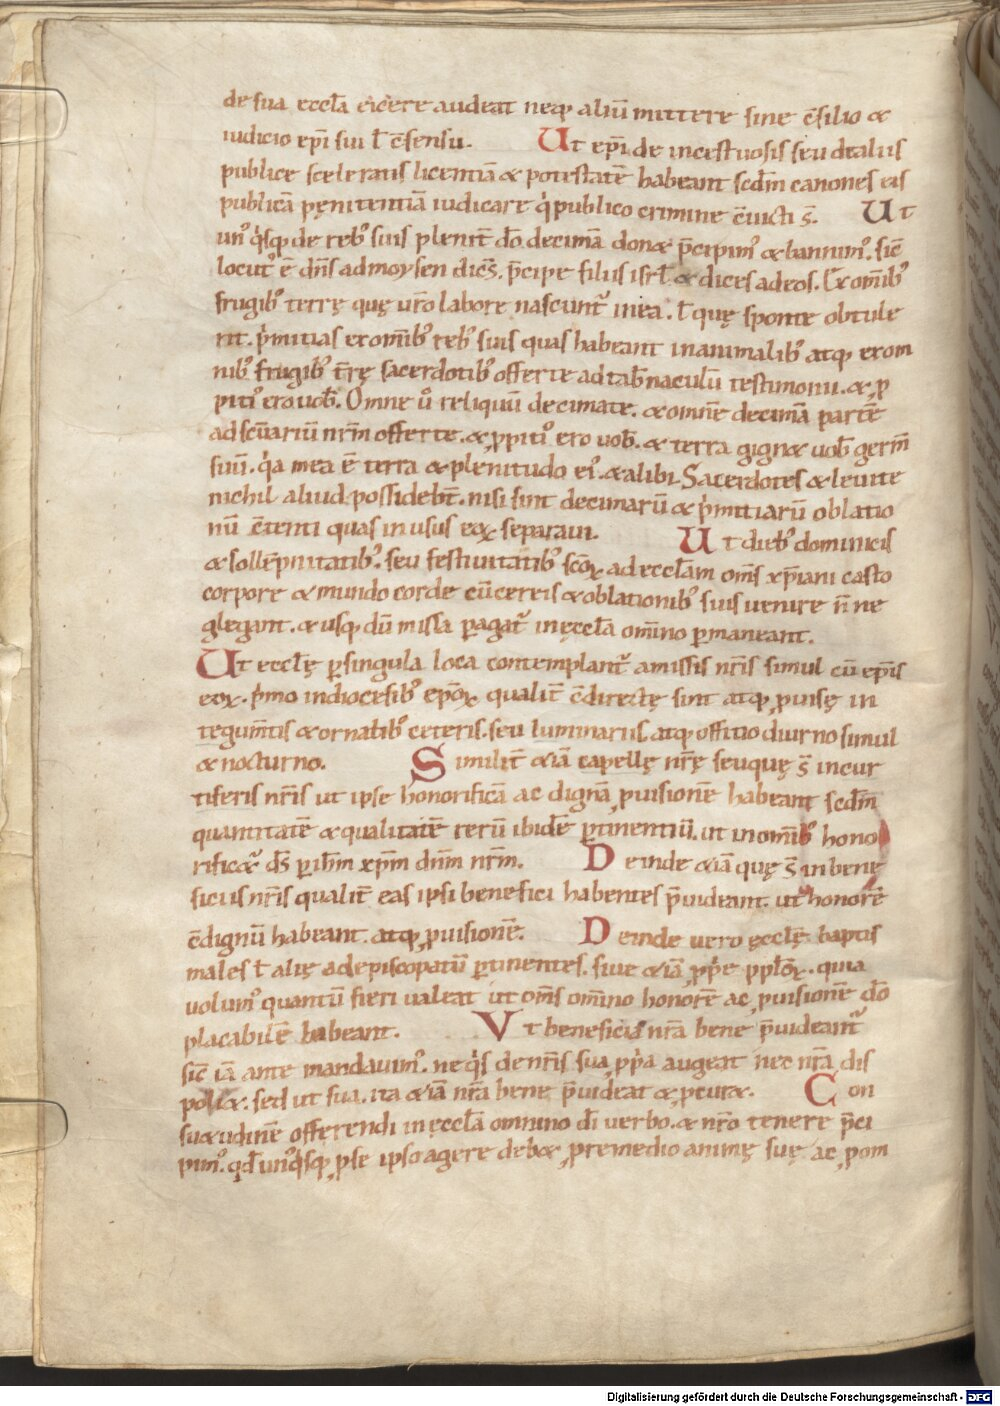 de sua eccłā eicere audeat neq; aliū mittere sine c̄silio &
iudicio ep̄i sui ł c̄sensu. Ut ep̄i de incestuosis seu de aliis
publice sceleratis licentiā & potestatē habeant scdm̄ canones eis
publicā pęnitentiā iudicare qͥ publico crimine c̄uicti s̄. Ut
unꝰ qͥsq; de rebꝰ suis plenit̄ dō decimā donæ p̄cipimꝰ & bannimꝰ. sic̄
locutꝰ ē dn̄s ad moysen dic̄s. p̄cipe filiis isrł & dices ad eos. Ex om̄ibꝰ
frugibꝰ terrę quę ur̄o labore nascunt̃ in ea. ł quę sponte obtule
rit. pͥmitias ex om̄ibꝰ rebꝰ suis quas habeant in animalibꝰ atq; ex om
nibꝰ frugibꝰ t̄rę sacerdotibꝰ offerte ad tab̄naculū testimonii. & ꝓ
pitiꝰ ero uob̄. Omne u̇ reliquū decimate. & omnē decimā partē
ad sc̄uariū nr̄m offerte. & ꝓpitiꝰ ero uob̄. & terra gignæ uob̄ germ̄
suū. qͥa mea ē terra & plenitudo eiꝰ. & alibi. Sacerdotes & leuite
nichil aliud possidebt̄. nisi sint decimarū & pͥmitiarū oblatio
nū c̄tenti quas in usus eoꝝ separaui. Ut diebꝰ dominicis
& sollēpnitatibꝰ. seu festiuitatibꝰ sc̄oꝝ ad ecclā̄m om̄s xp̄iani casto
corpore & mundo corde cū cereis & oblationibꝰ suis uenire n̄ ne
glegant. & usq; dū missa ꝑagat̃ in ęccłā om̄ino ꝑmaneant.
Ut eccłę ꝑ singula loca contemplant̃ a missis nr̄is simul cū ep̄is
eoꝝ. pͥmo in diocesibꝰ ep̄oꝝ qualit̄ c̄directę sint atq; ꝓuisę in
tegum̄tis & ornatibꝰ ceteris. seu luminariis. atq; offitio diurno simul
& nocturno. Similit̄ &iā capellę nr̄ę seu quę s̄ in cur
tiferis nr̄is ut ipse honorificā ac dignā ꝓuisionē habeant scdm̄
quantitatē & qualitatē rerū ibidē ꝑtinentiū. ut in om̄ibꝰ hono
rificæ̃ ds̄ ꝑ ihm̄ xp̄m dn̄m nr̄m. Deinde &iā quę s̄ in bene
ficiis nr̄is qualit̄ eas ipsi benefici habentes p̄uideant. ut honorē
c̄dignū habeant. atq; ꝓuisionē. Deinde uero ęccłę baptis
males ł alię ad episcopatū ꝑtinentes. siue &iā ꝓp̄e pp̄łoꝝ. quia
uolumꝰ quantū fieri ualeat ut om̄s om̄ino honorē ac ꝓuisionē dō
placabilē habeant. Vt beneficia nr̄a bene p̄uideant̃
sic̄ iā ante mandauimꝰ. ne qͥs de nr̄is sua ꝓpͥa augeat nec nr̄a dis
poliæ. sed ut sua. ita &iā nr̄a bene p̄uideat & ꝓcuræ. Con
suætudinē offerendi in ęccłā omnino di̅ uerbo. & nr̄o tenere p̄ci
pimꝰ. qd̄ unꝰqͥsq; ꝓ se ipso agere debæ ꝓ remedio animę suę ac ꝓ om
Digitalisierung gefördert durch die Deutsche Forschungsgemeinschaft - DFG